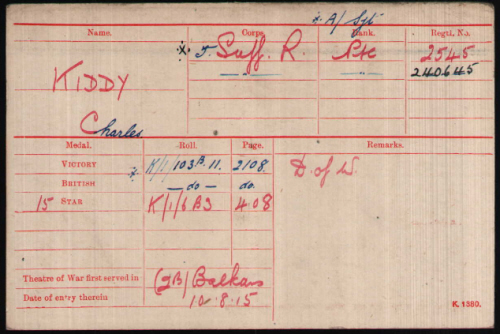 x A/Sgt
Name. Corps. Rank. Regtl. No.
x 5. Suff. R. Pte 2545
KIDDY —"— —"— 240645
Charles
Medal. Roll. Page. Remarks.
VICTORY x K/1/103 B 11. 2108. D. of W.
BRITISH —do— do.
15 STAR K/1/6 B3 408
Theatre of War first served in (2B) Balkans
Date of entry therein 10.8.15
K. 1380.